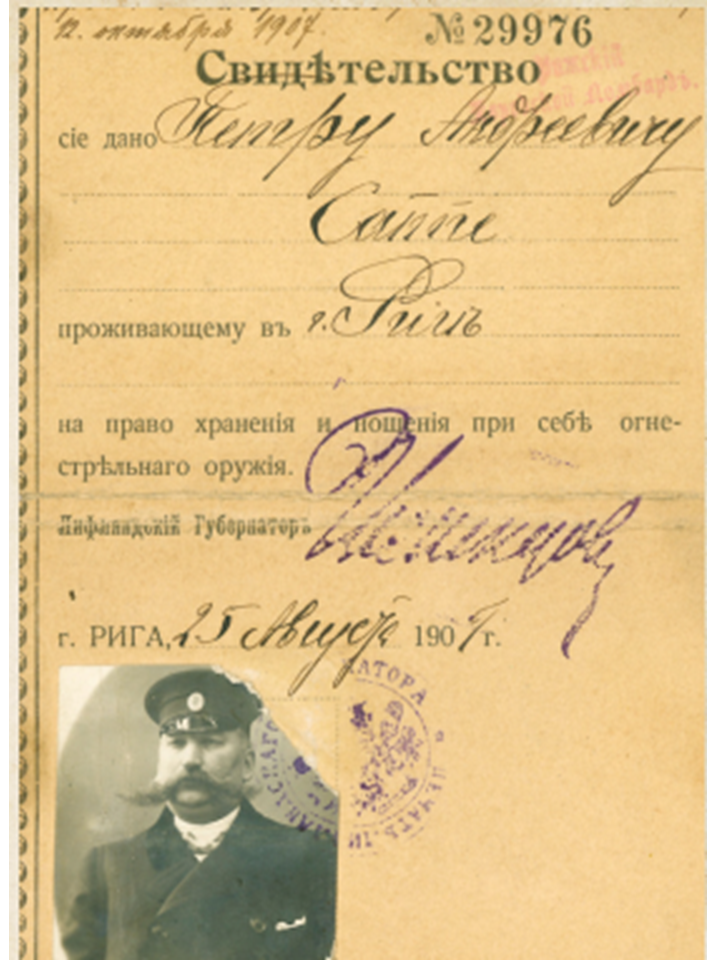 12. октября 1907.
№ 29976
Свидѣтельство
сіе дано Петру Андреевичу
Саппе
проживающему въ г. Ригѣ
на право храненія и ношенія при себѣ огне-
стрѣльнаго оружія.
Лифляндскій Губернаторъ
г. РИГА, 25 Августа 1907 г.
ПЕЧАТЬ